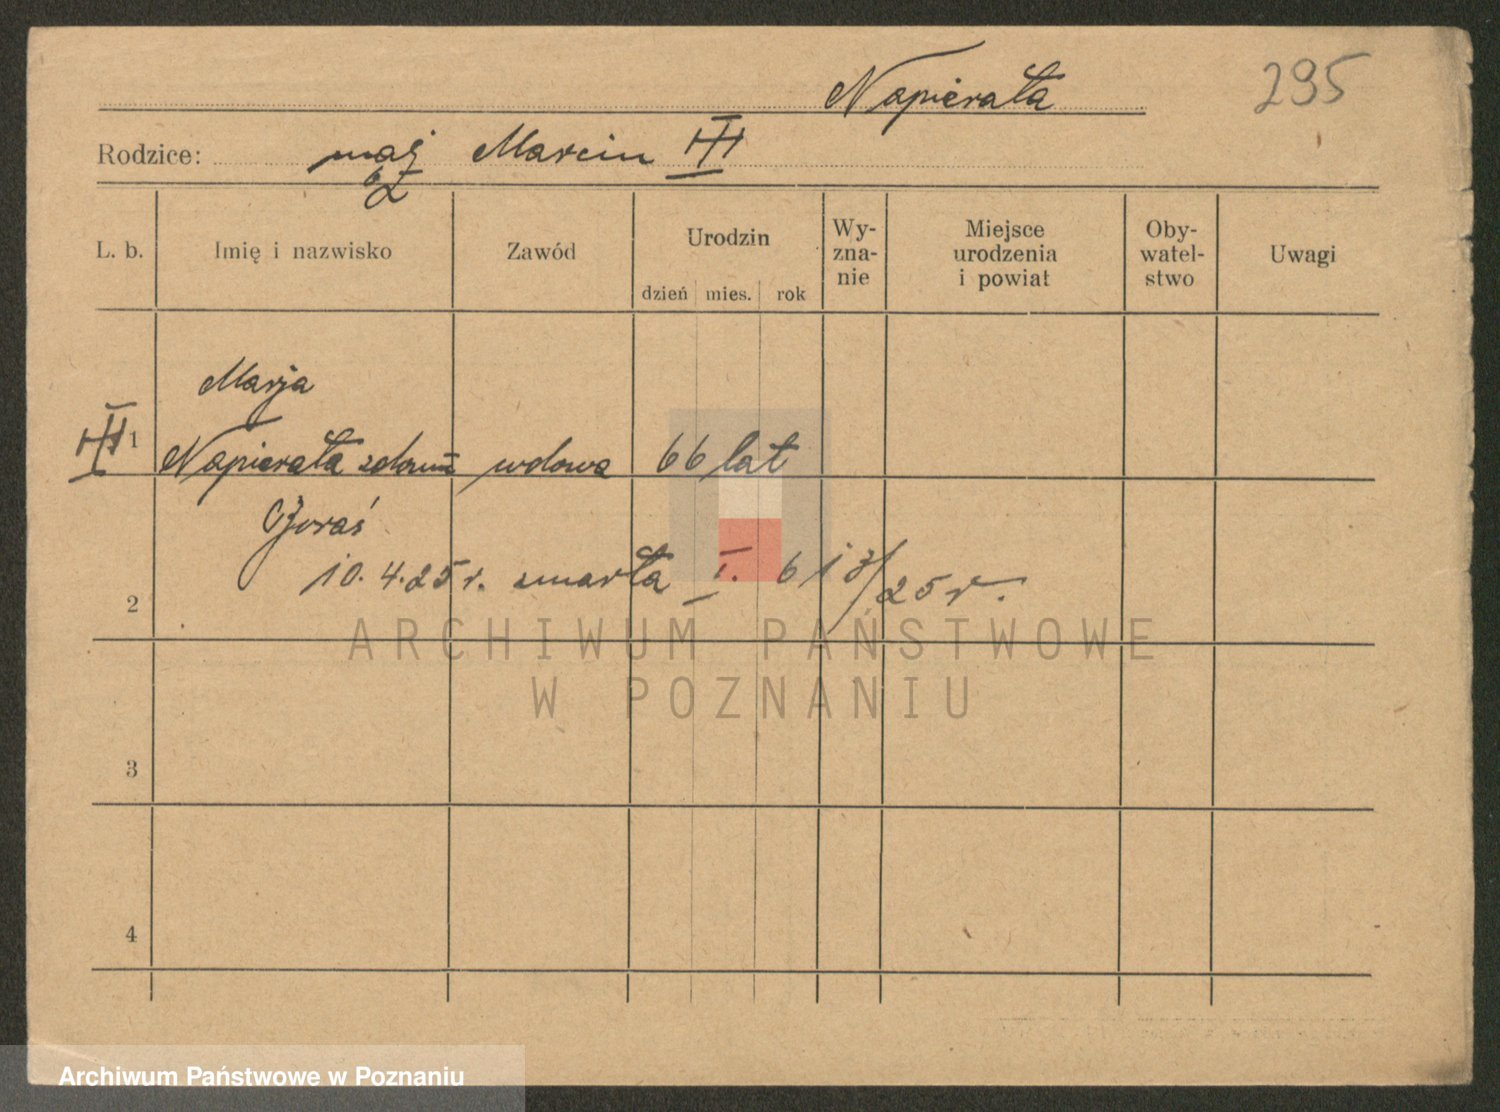 Napierała
295
Rodzice: mąż Marcin
L. b. Imię i nazwisko Zawód Urodzin dzień mies. rok Wy-zna-nie Miejsce urodzenia i powiat Oby-watel-stwo Uwagi
Marja
1 Napierała zdomu wdowa 66 lat
10.4.25 r. umarła I. 613/25 r.
2
3
4
ARCHIWUM PAŃSTWOWE
W POZNANIU
Archiwum Państwowe w Poznaniu